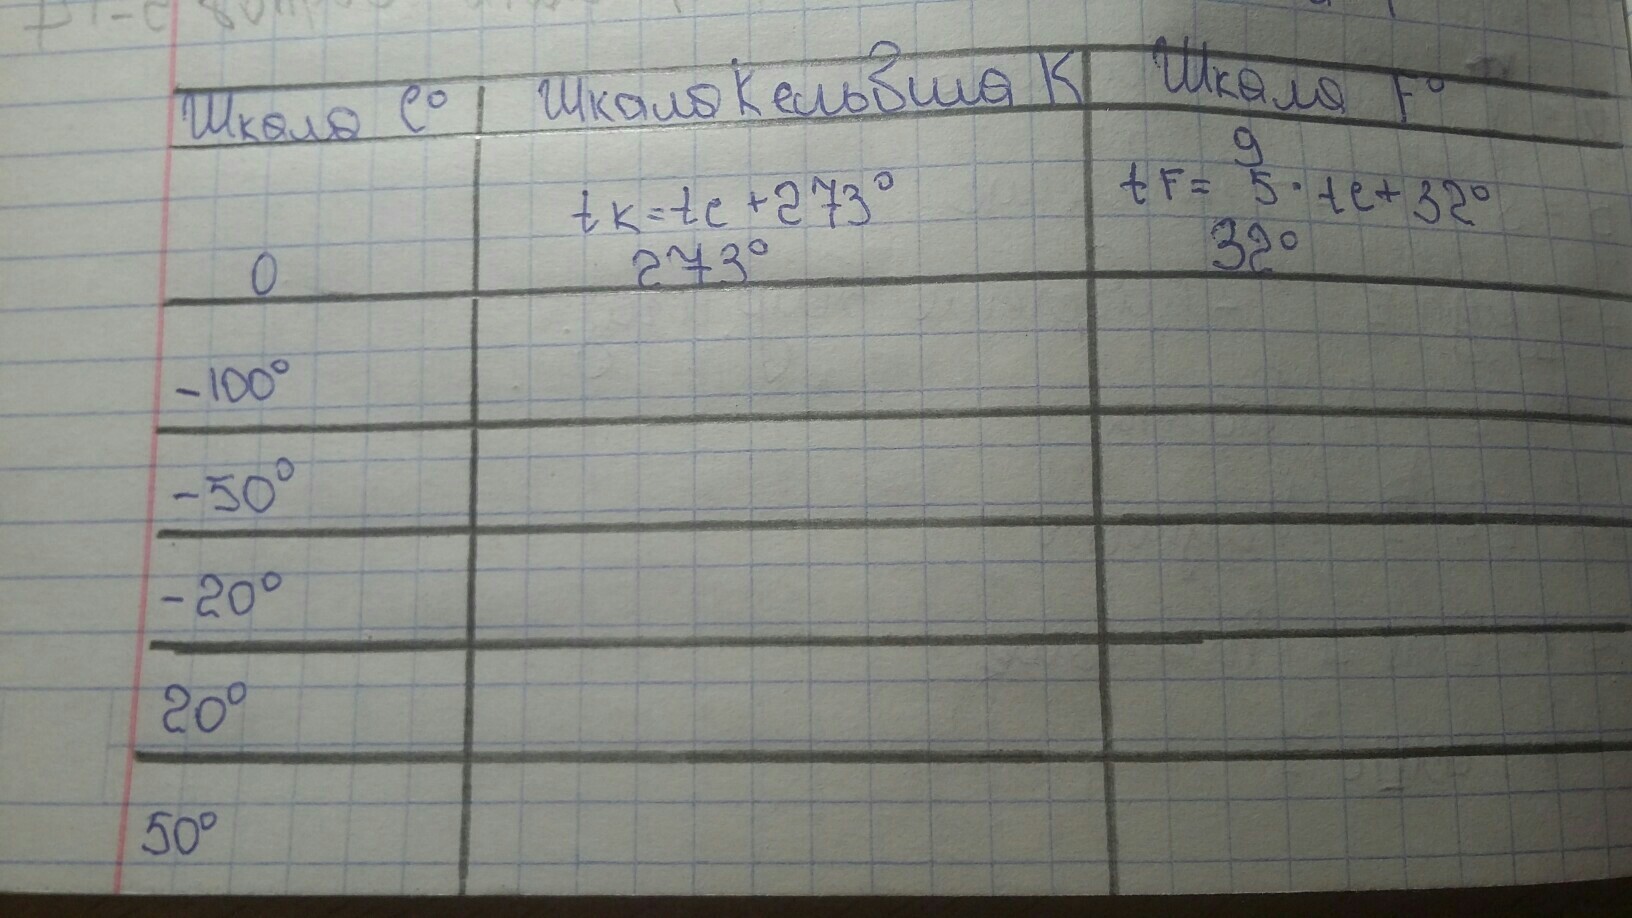 Шкала C° Шкала Кельвина К Шкала F°
9
tк=tc+273° tF= 5 · tc+32°
0 273° 32°
-100°
-50°
-20°
20°
50°